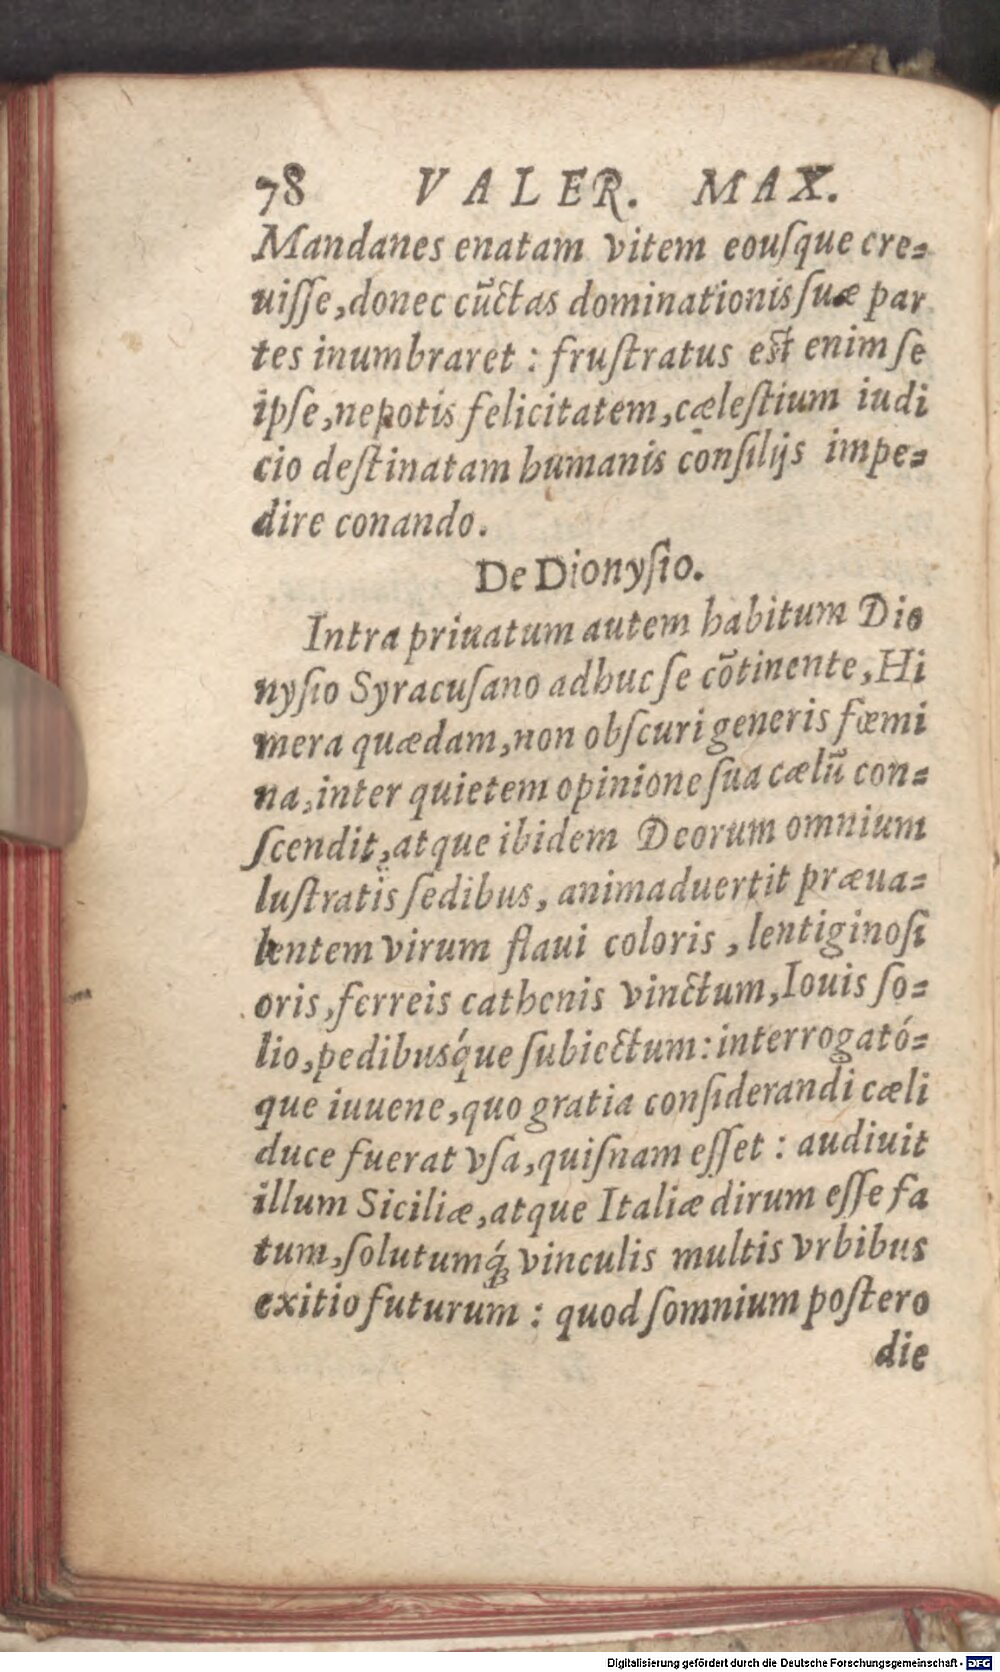 78 VALER. MAX.
Mandanes enatam vitem eouſque cre=
uiſſe, donec cūctas dominationis ſuæ par
tes inumbraret : fruſtratus eſt enim ſe
ipſe, nepotis felicitatem, cæleſtium iudi
cio deſtinatam humanis conſilijs impe=
dire conando.
De Dionyſio.
Intra priuatum autem habitum Dio
nyſio Syracuſano adhuc ſe cōtinente, Hi
mera quædam, non obſcuri generis fœmi
na, inter quietem opinione ſua cælū con=
ſcendit, atque ibidem Deorum omnium
luſtratis ſedibus, animaduertit præua=
lentem virum flaui coloris, lentiginoſi
oris, ferreis cathenis vinctum, Iouis ſo=
lio, pedibusq́ue ſubiectum: interrogató=
que iuuene, quo gratia conſiderandi cæli
duce fuerat vſa, quiſnam eſſet : audiuit
illum Siciliæ, atque Italiæ dirum eſſe fa
tum, ſolutumq́ꝫ vinculis multis vrbibus
exitio futurum : quod ſomnium poſtero
die
Digitalisierung gefördert durch die Deutsche Forschungsgemeinschaft - DFG